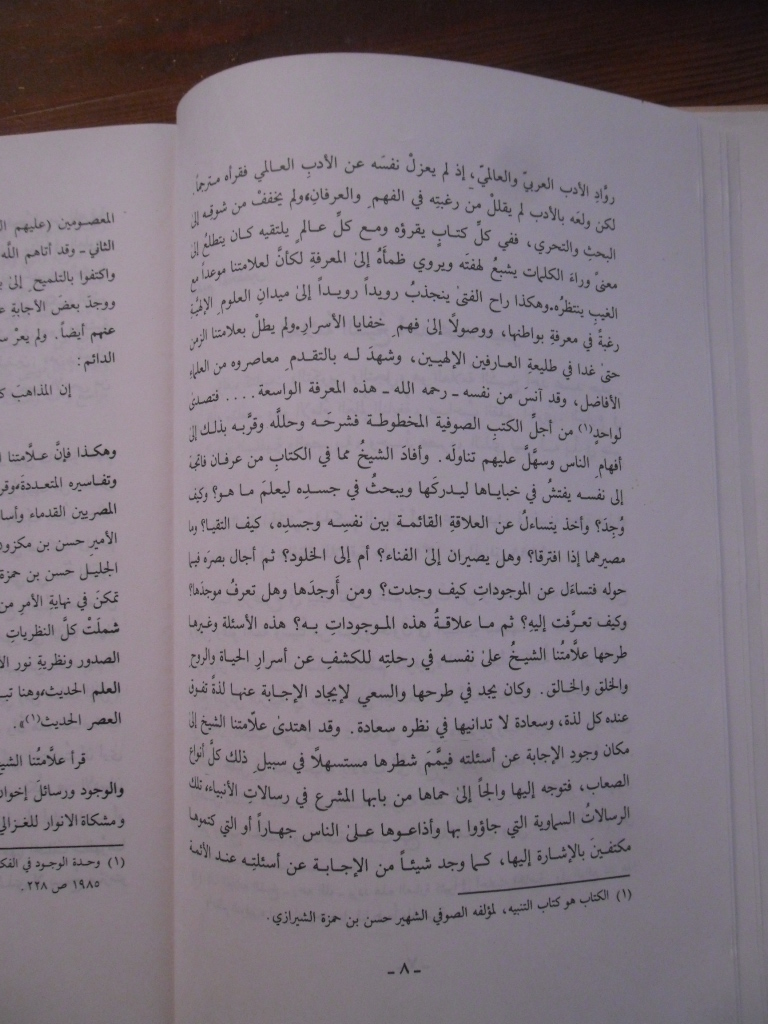 روّادِ الأدب العربيّ والعالميّ، إذ لم يعزلْ نفسَه عن الأدبِ العـالمي فقرأه مـترجماً.
لكن ولعَه بالأدب لم يقللْ من رغبتِه في الفهم ِ والعرفانِ،ولم يخففْ من شوقِه إلى
البحثِ والتحري، ففي كلِّ كتـابٍ يقرؤه ومـع كلِّ عـالم ٍ يلتقيه كـان يتطلعُ إلى
معنىً وراءَ الكلمات يشبعُ لهفتَه ويروي ظمأَهُ إلىٰ المعرفةِ لكأنَّ لعلامتنا موعداً مع
الغيبِ ينتظرُه.وهكذا راح الفتىٰ ينجذبُ رويداً رويـداً إلىٰ ميدانِ العلوم ِ الإلهيّةِ
رغبةً في معرفةِ بواطنها، ووصولاً إلىٰ فهم ِ خفايا الأسرارِ.ولم يطلْ بعلامتنا الزمن
حتىٰ غدا في طليعةِ العـارفين الإلهيـين، وشهدَ لـه بالتقـدم ِ معاصروه من العلماءِ
الأفاضل، وقد آنسَ من نفسه ـ رحمه الله ـ هذه المعرفة الواسعة.... فتصدىٰ
لواحدٍ(١) من أجلِّ الكتبِ الصوفية المخطوطـة فشرحَـه وحللَّه وقرَّبـه بذلـك إلى
أفهام ِ الناس وسهَّلَ عليهم تناولَه. وأفادَ الشيخُ مما في الكتابِ من عرفـان فاتجهَ
إلى نفسـه يفتشُ في خبايـاها ليـدركَها ويبحثُ في جسـده ليعلمَ مـا هو؟ وكيف
وُجِدَ؟ وأخذ يتساءلُ عن العلاقةِ القائمـة بين نفسِـه وجسـدِه، كيف التقيا؟ وما
مصيرهما إذا افترقا؟ وهل يصيران إلىٰ الفناء؟ أم إلى الخلود؟ ثم أجال بصرَه فيما
حوله فتساءَل عن الموجوداتِ كيف وجدت؟ ومن أَوجدَها وهل تعرفُ موجدَها؟
وكيف تعـرَّفت إليهِ؟ ثم مـا علاقـةُ هذه المـوجوداتِ بـه؟ هذه الأسئلة وغيرها
طرحها علَّامتُنا الشيـخُ علىٰ نفسـه في رحلتِه للكشفِ عن أسرارِ الحيـاة والروح
والخلق والخـالق. وكـان يجد في طرحِها والسعي لإيجادِ الإجـابة عنهـا لذةً تفـوق
عنده كل لذة، وسعادة لا تدانيها في نظره سعادة. وقد اهتدىٰ علّامتنا الشيخ إلى
مكان وجودِ الإجابة عن أسئلته فيمَّمَ شطرها مستسهلًا في سبيل ِ ذلك كلَّ أنواع
الصعاب، فتوجه إليها والجاً إلىٰ حماها من بابها المشرع في رسالاتِ الأنبياءِ، تلك
الرسالاتُ السماوية التي جاؤوا بها وأذاعـوها عـلىٰ الناس جهـاراً أو التي كتموها
مكتفين بالإشارة إليها، كـما وجد شيئـاً من الإجـابـة عن أسئلتِـه عند الأئمة
(١) الكتاب هو كتاب التنبيه، لمؤلفه الصوفي الشهير حسن بن حمزة الشيرازي.
ـ ٨ ـ
المعصـومين (عليهم
الثاني ـ وقد أتاهم اللَّه
واكتفوا بالتلميح ِ إلىٰ
ووجدَ بعضَ الأجابةِ
عنهم أيضاً. ولم يعرْ
الدائم:
إن المذاهبَ
وهكـذا فإنَّ عـلَّامتنا
وتفـاسيره المتعـددة،وقر
المصريين القدماء وأسا
الأمير حسن بن مكزو
الجليـل حسن بن حمزة
تمكنَ في نهايةِ الأمرِ من
شملَتْ كلَّ النظرياتِ
الصدور ونظريةِ نور
العلم الحديث،وهنا
العصر الحديث(١)».
قرأ علَّامتُنا الشي
والوجود ورسائلَ إخوا
ومشكاة الانوار للغـزالي
(١) وحـدة الوجـود في الفكـ
١٩٨٥ ص ٢٢٨.